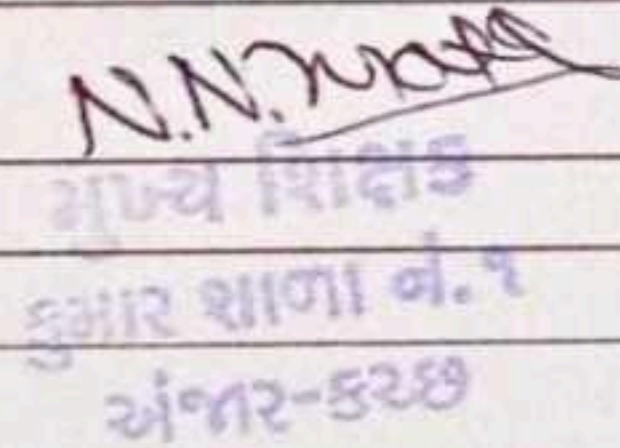 N.N.
મુખ્ય શિક્ષક
કુમાર શાળા નં. ૧
અંજાર-કચ્છ